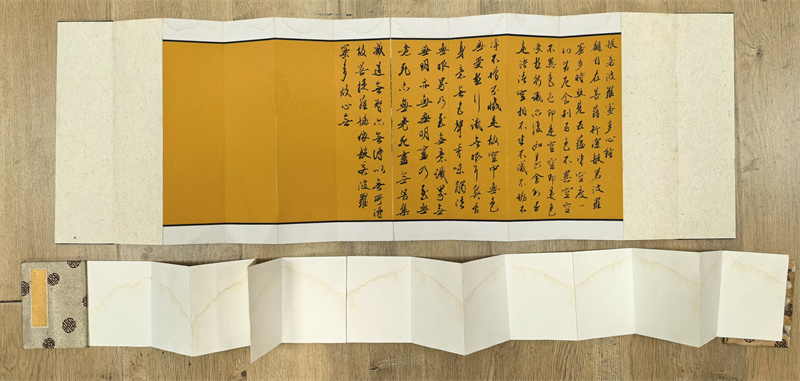 般若波羅蜜多心経
観自在菩薩行深般若波羅
蜜多時照見五蘊皆空度一
切苦厄舍利子色不異空空
不異色色即是空空即是色
受想行識亦復如是舍利子
是諸法空相不生不滅不垢不
浄不増不減是故空中無色
無受想行識無眼耳鼻舌
身意無色聲香味觸法
無眼界乃至無意識界無
無明亦無無明盡乃至無
老死亦無老死盡無苦集
滅道無智亦無得以無所得
故菩提薩埵依般若波羅
蜜多故心無